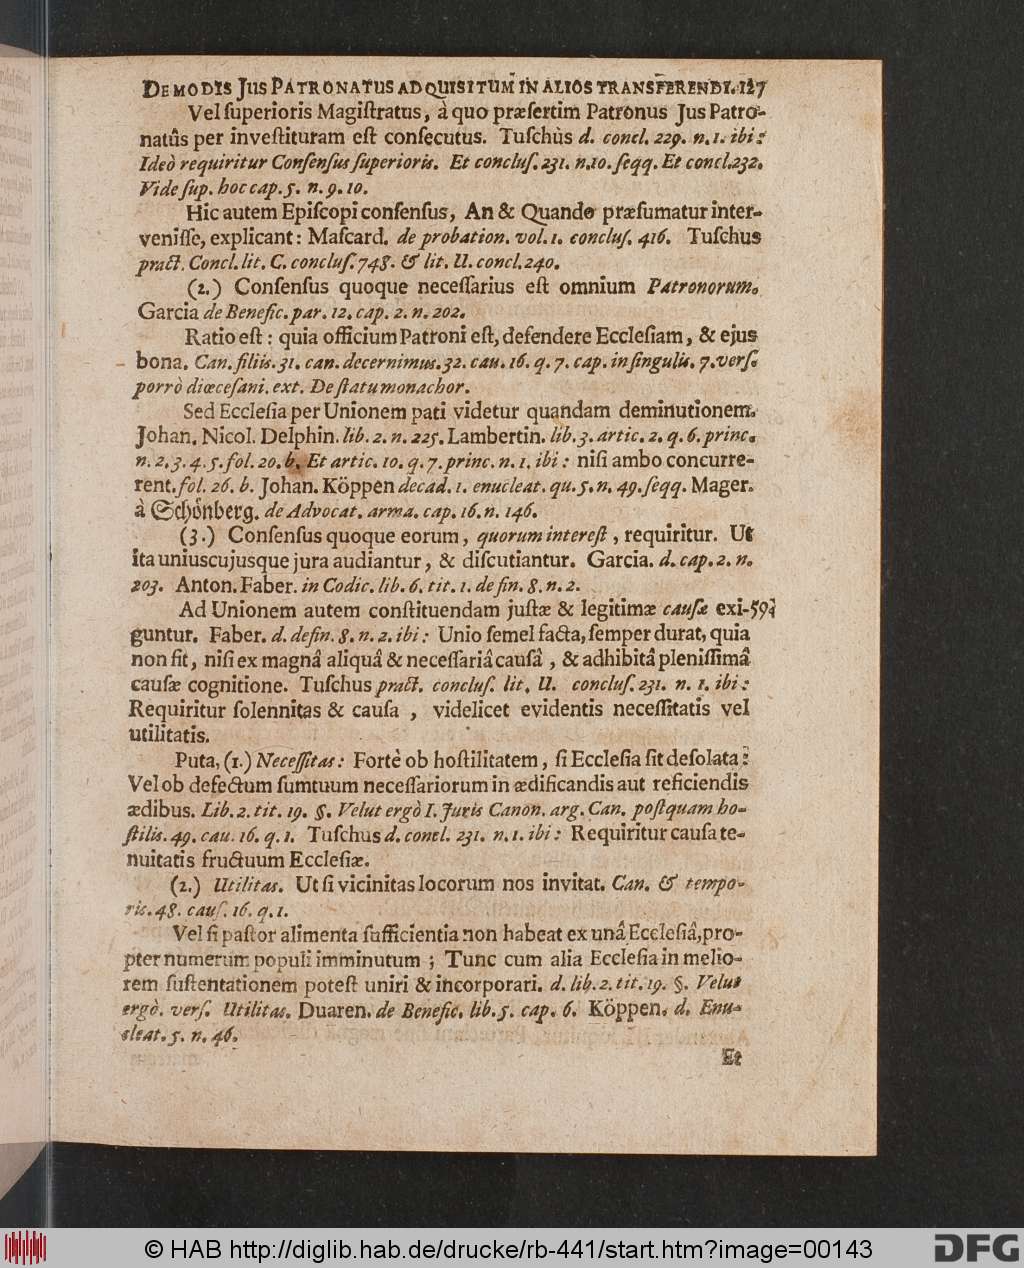 DE MODIS JUS PATRONATUS ADQUISITUM IN ALIOS TRANSFERENDI. 127
Vel ſuperioris Magiſtratus, à quo præſertim Patronus Jus Patro-
natûs per inveſtituram eſt conſecutus. Tuſchùs d. concl. 229. n. 1. ibi:
Ideò requiritur Conſenſus ſuperioris. Et concluſ. 231. n.10. ſeqq. Et concl.232.
Vide ſup. hoc cap. 5. n. 9. 10.
Hic autem Epiſcopi conſenſus, An & Quando præſumatur inter-
veniſſe, explicant: Maſcard. de probation. vol. 1. concluſ. 416. Tuſchus
pract. Concl. lit. C. concluſ. 748. & lit. U. concl. 240.
(2.) Conſenſus quoque neceſſarius eſt omnium Patronorum.
Garcia de Benefic. par. 12. cap. 2. n. 202.
Ratio eſt: quia officium Patroni eſt, defendere Eccleſiam, & ejus
bona. Can. filiis. 31. can. decernimus. 32. cau. 16. q. 7. cap. in ſingulis. 7. verſ.
porrò diœceſani. ext. De ſtatu monachor.
Sed Eccleſia per Unionem pati videtur quandam deminutionem.
Johan. Nicol. Delphin. lib. 2. n. 225. Lambertin. lib. 3. artic. 2. q. 6. princ.
n. 2. 3. 4. 5. fol. 20. b. Et artic. 10. q. 7. princ. n. 1. ibi: niſi ambo concurre-
rent. fol. 26. b. Johan. Köppen decad. 1. enucleat. qu. 5. n. 49. ſeqq. Mager.
à Schönberg. de Advocat. arma. cap. 16. n. 146.
(3.) Conſenſus quoque eorum, quorum intereſt, requiritur. Ut
ita uniuscujusque jura audiantur, & diſcutiantur. Garcia. d. cap. 2. n.
203. Anton. Faber. in Codic. lib. 6. tit. 1. defin. 8. n. 2.
Ad Unionem autem conſtituendam juſtæ & legitimæ cauſæ exi- 59
guntur. Faber. d. defin. 8. n. 2. ibi: Unio ſemel facta, ſemper durat, quia
non fit, niſi ex magnâ aliquâ & neceſſariâ cauſâ, & adhibitâ pleniſſimâ
cauſæ cognitione. Tuſchus pract. concluſ. lit. U. concluſ. 231. n. 1. ibi:
Requiritur ſolennitas & cauſa, videlicet evidentis neceſſitatis vel
utilitatis.
Puta, (1.) Neceſſitas: Fortè ob hoſtilitatem, ſi Eccleſia ſit deſolata:
Vel ob defectum ſumtuum neceſſariorum in ædificandis aut reficiendis
ædibus. Lib. 2. tit. 19. §. Velut ergò 1. Juris Canon. arg. Can. poſtquam ho-
ſtilis. 49. cau. 16. q. 1. Tuſchus d. concl. 231. n. 1. ibi: Requiritur cauſa te-
nuitatis fructuum Eccleſiæ.
(2.) Utilitas. Ut ſi vicinitas locorum nos invitat. Can. & tempo-
ris. 48. cauſ. 16. q. 1.
Vel ſi paſtor alimenta ſufficientia non habeat ex unâ Eccleſiâ, pro-
pter numerum populi imminutum; Tunc cum alia Eccleſia in melio-
rem ſuſtentationem poteſt uniri & incorporari. d. lib. 2. tit. 19. §. Velut
ergò. verſ. Utilitas. Duaren. de Benefic. lib. 5. cap. 6. Köppen. d. Enu-
cleat. 5. n. 46.
Et
© HAB http://diglib.hab.de/drucke/rb-441/start.htm?image=00143
DFG